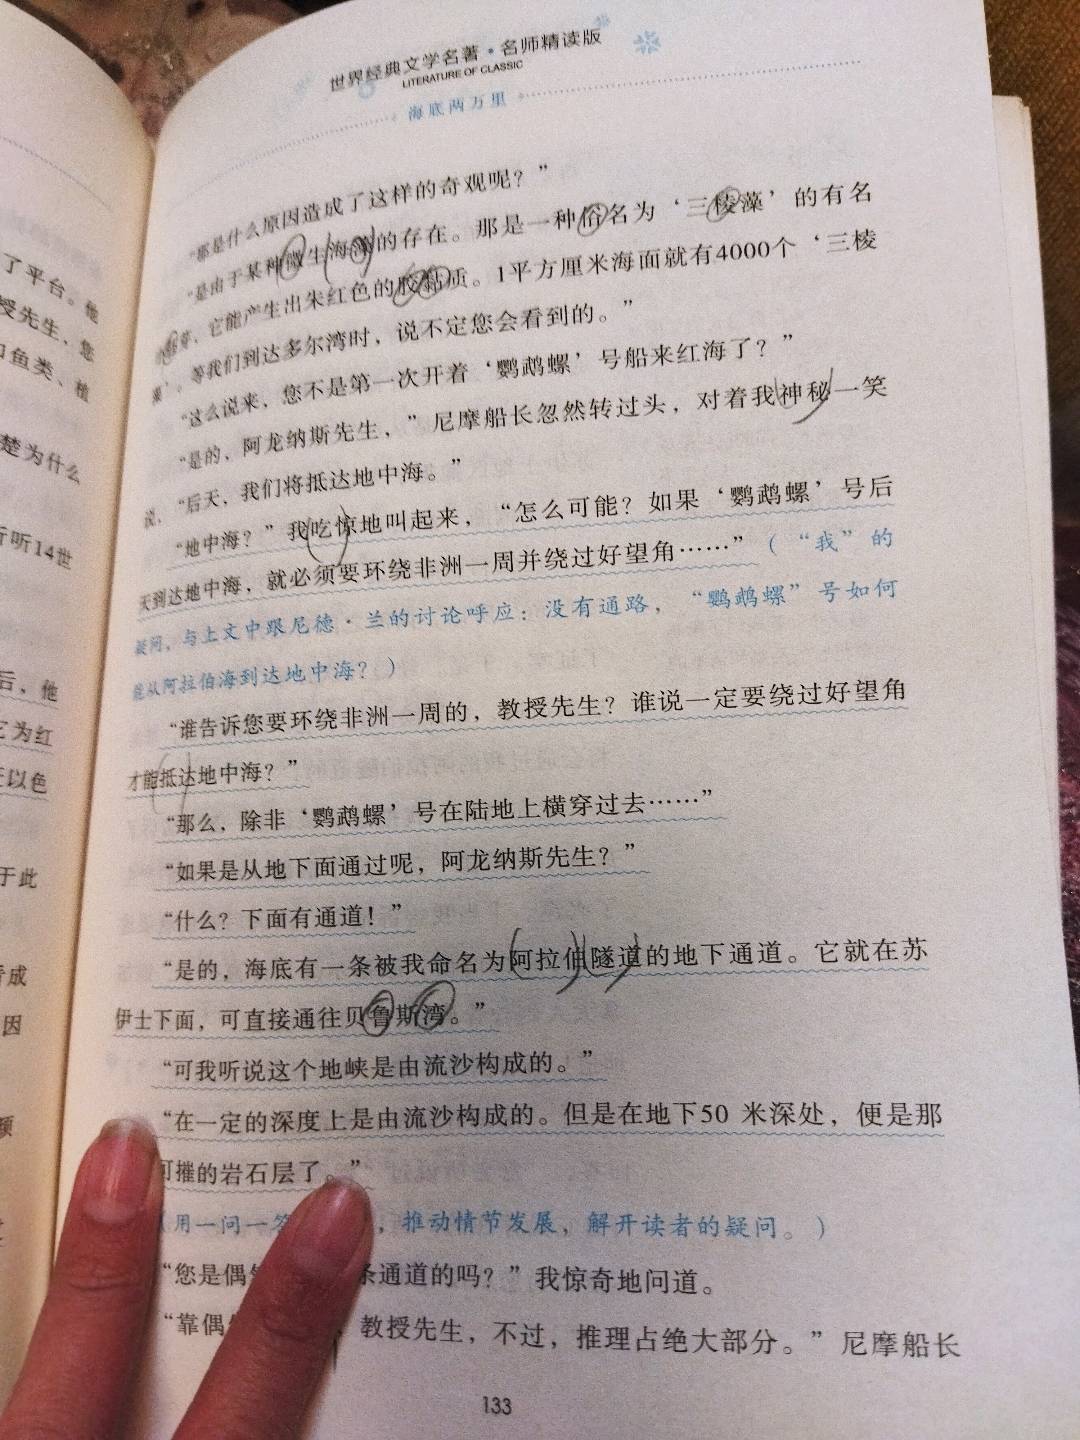 世界经典文学名著·名师精读版
LITERATURE OF CLASSIC
海底两万里
了平台。他
授先生，您
和鱼类、植
楚为什么
听14世
后，他
它为红
以色
于此
成
因
“那是什么原因造成了这样的奇观呢？”
“是由于某种微生海藻的存在。那是一种俗名为‘三棱藻’的有名
，它能产生出朱红色的胶黏质。1平方厘米海面就有4000个‘三棱
藻’。等我们到达多尔湾时，说不定您会看到的。”
“这么说来，您不是第一次开着‘鹦鹉螺’号船来红海了？”
“是的，阿龙纳斯先生，”尼摩船长忽然转过头，对着我神秘一笑
说，“后天，我们将抵达地中海。”
“地中海？”我吃惊地叫起来，“怎么可能？如果‘鹦鹉螺’号后
天到达地中海，就必须要环绕非洲一周并绕过好望角……”（“我”的
疑问，与上文中跟尼德·兰的讨论呼应：没有通路，“鹦鹉螺”号如何
能从阿拉伯海到达地中海？）
“谁告诉您要环绕非洲一周的，教授先生？谁说一定要绕过好望角
才能抵达地中海？”
“那么，除非‘鹦鹉螺’号在陆地上横穿过去……”
“如果是从地下面通过呢，阿龙纳斯先生？”
“什么？下面有通道！”
“是的，海底有一条被我命名为阿拉伯隧道的地下通道。它就在苏
伊士下面，可直接通往贝鲁斯湾。”
“可我听说这个地峡是由流沙构成的。”
“在一定的深度上是由流沙构成的。但是在地下50 米深处，便是那
可摧的岩石层了。”
用一问一答，推动情节发展，解开读者的疑问。）
“您是偶条通道的吗？”我惊奇地问道。
“靠偶，教授先生，不过，推理占绝大部分。”尼摩船长
133